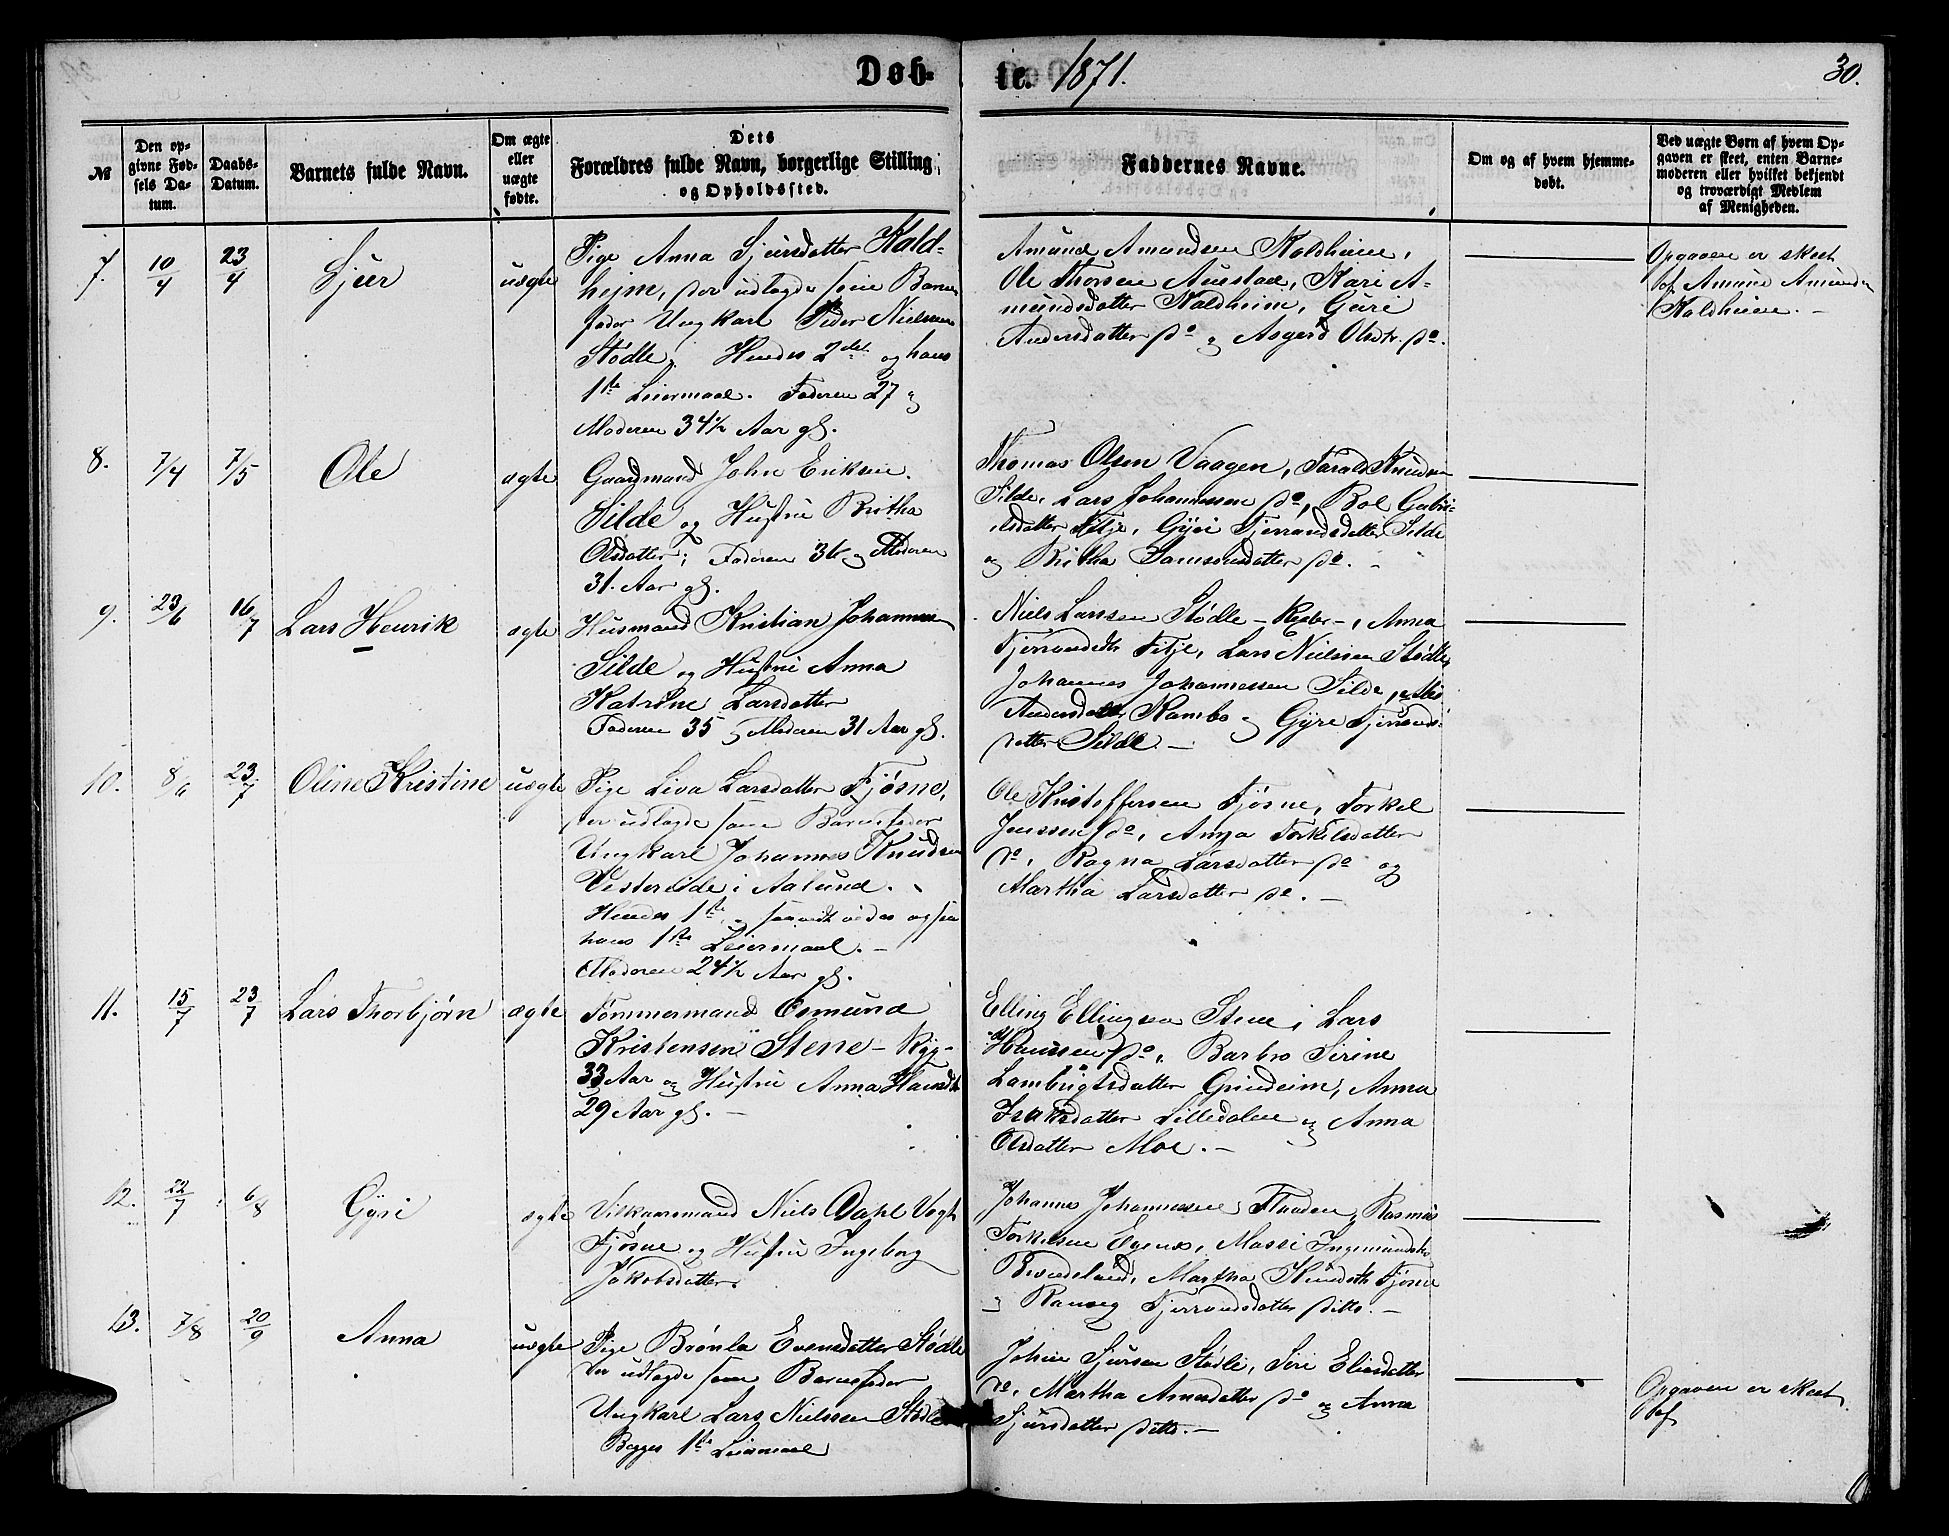 Døb-
te. 1871.
30.
№
Den op-
givne Fød-
sels Da-
tum.
Daabs-
Datum.
Barnets fulde Navn.
Om ægte
eller
uægte
fødte.
Dets
Forældres fulde Navn, borgerlige Stilling
og Opholdssted.
Faddernes Navne.
Om og af hvem hjemme-
døbt.
Ved uægte Børn af hvem Op-
gaven er skeet, enten Barne-
moderen eller hvilket bekjendt
og troværdigt Medlem
af Menigheden.
7.
10/4
23/4
Sjur
uægte
Pige Anna Sjursdatter Kald-
heim, der udlagde som Barne-
fader Ungkarl Peder Nielsen
Stødle. Hendes 2det og hans
1ste Leiermaal. Faderen 27 og
Moderen 34½ Aar gl.
Amund Amundsen Kaldheim,
Ole Thorsen Austad, Kari A-
mundsdatter Kaldheim, Guri
Andersdatter do og Asgerd Olsdtr. do.
Opgaven er skeet
af Amund Amundsen
Kaldheim. -
8.
7/4
7/5
Ole
ægte
Gaardmand John Eriksen
Silde og Hustru Britha
Olsdatter; Faderen 36 og Moderen
31 Aar gl.
Thomas Olsen Vaagen, Tarald Knudsen
Silde, Lars Johannessen do, Bol Gabri-
elsdatter Fitje, Gyri Tjerrandsdatter Silde
og Britha Samsonsdatter do. -
9.
23/6
16/7
Lars Henrik
ægte
Husmand Kristian Johannesen
Silde og Hustru Anna
Katrine Larsdatter
Faderen 35 og Moderen 31 Aar gl.
Niels Larssen Stødle - , Anna
Tjerrandsdtr Fitje, Lars Nielssen Stødle,
Johannes Johannessen Silde,
Andersdatter Kambo og Gyre Tjerrands-
datter Silde. -
10.
8/6
23/7
Oline Kristine
uægte
Pige Liva Larsdatter Fjøsne,
der udlagde som Barnefader
Ungkarl Johannes Knudsen
i Aalund.
Hendes 1ste, og saavidt vides ogsaa
hans 1ste Leiermaal. -
Moderen 24½ Aar gl.
Ole Kristoffersen Fjøsne, Torkel
Jenssen do, Anna Torkelsdatter
do, Ragna Larsdatter do og
Martha Larsdatter do. -
11.
15/7
23/7
Lars Thorbjørn
ægte
Tømmermand Osmund
Kristensen Stene -
33 Aar og Hustru Anna Hansdtr
29 Aar gl. -
Elling Ellingsen Stene, Lars
Hanssen do, Barbro Sirine
Lambrigtsdatter Grindeim, Anna
Isaksdatter Lilledalen og Anna
Olsdatter Moe. -
12.
22/7
6/8
Gyri
ægte
Vilkaarsmand Niels Dahl Vogt
Fjøsne og Hustru Ingeborg
Jakobsdatter.
Johannes Johannessen Flaaden, Rasmus
Torkelsen , Massi Ingemundsdtr
, Martha Knudsdtr Fjøsne
og Ranveig Tjerrandsdatter ditto. -
13.
7/8
20/9
Anna
uægte
Pige Brønla Evensdatter Stødle
der udlagde som Barnefader
Ungkarl Lars Nielssen Stødle
Begges 1ste Leiermaal
Johan Sjursen Stødle, Siri Eliasdatter
do, Martha do og Anna
Sjursdatter ditto. -
Opgaven er skeet
af